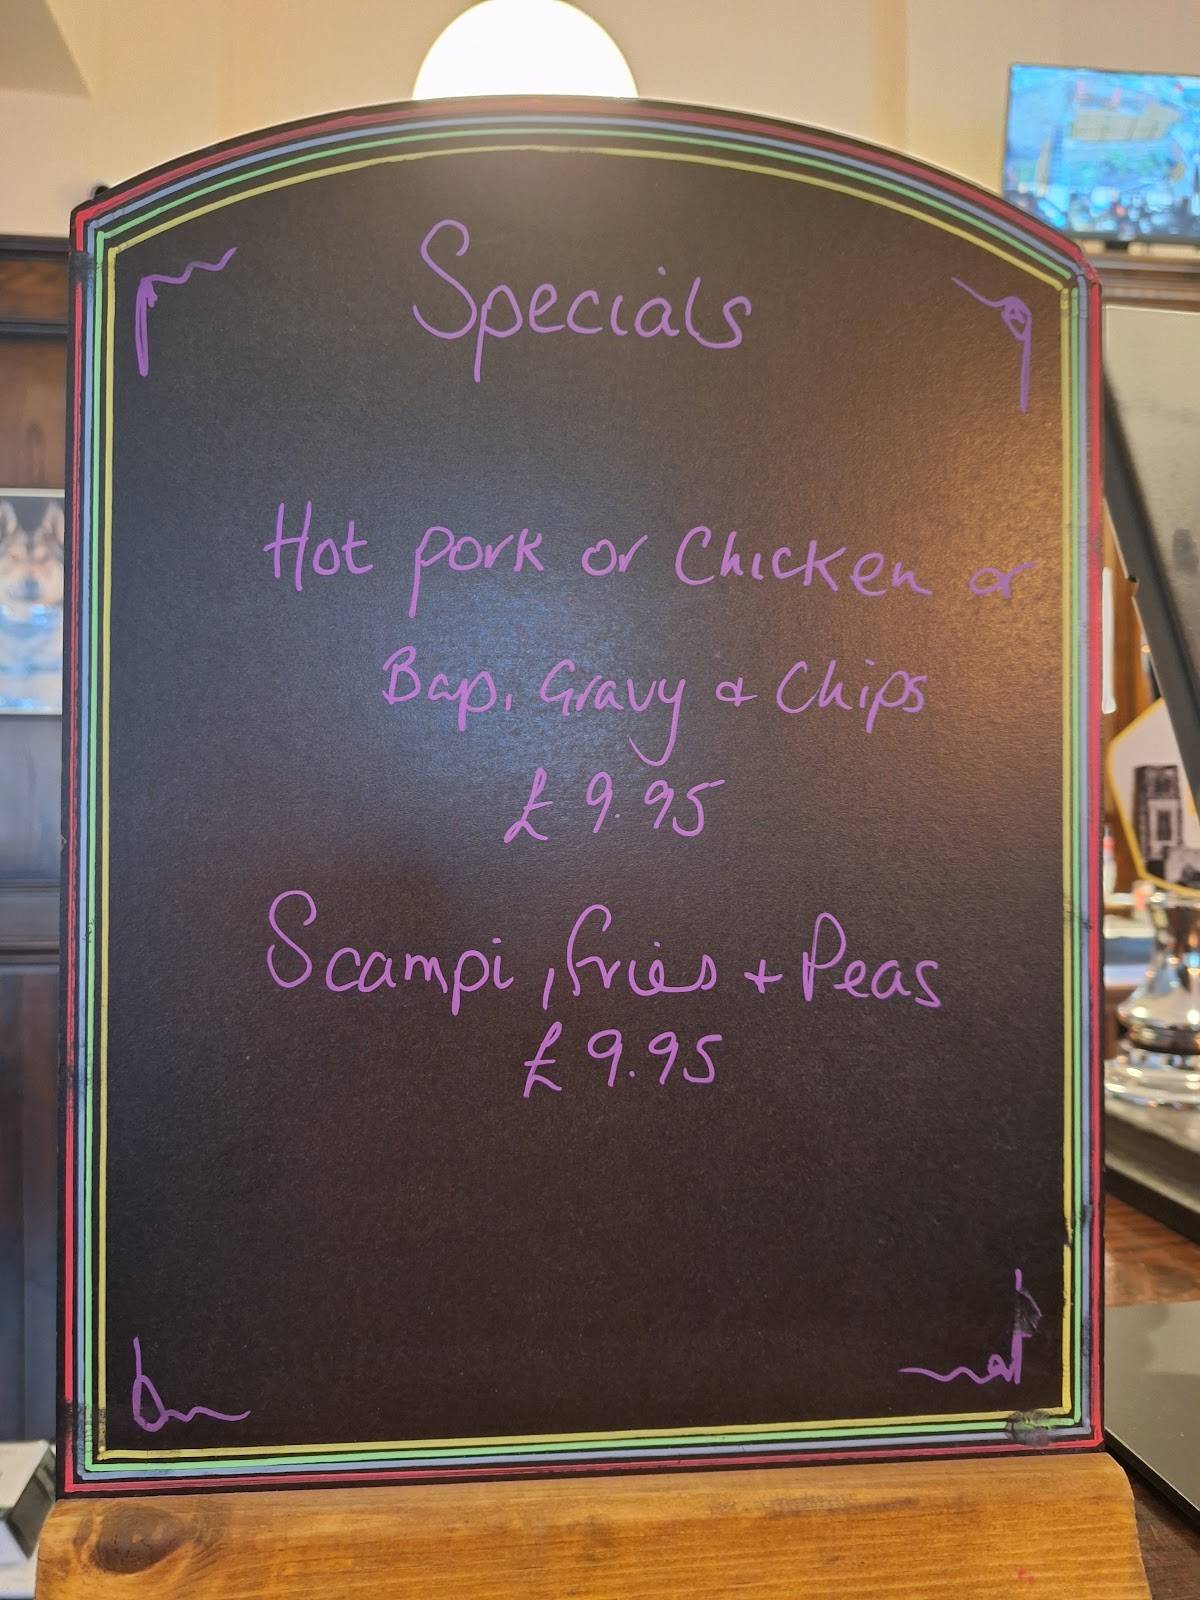 Specials
Hot pork or Chicken or
Bap, Gravy & Chips
£9.95
Scampi, fries + Peas
£9.95